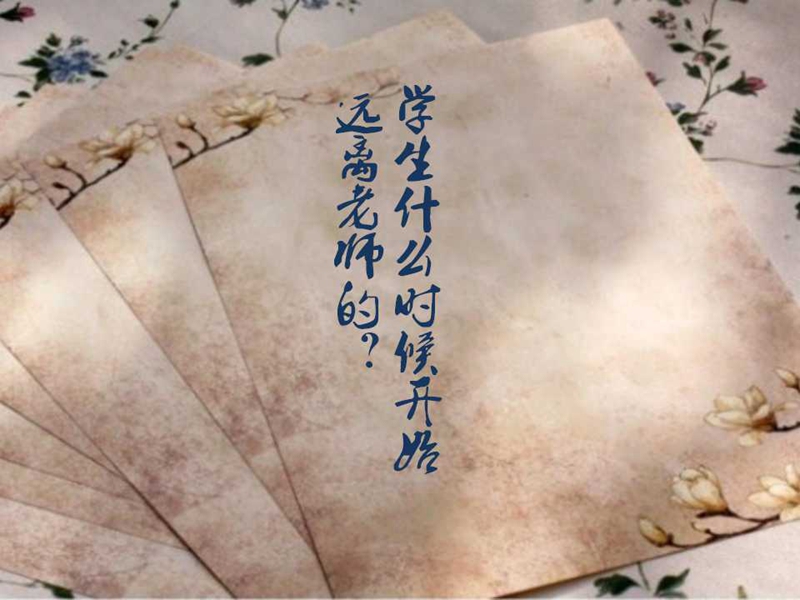 学生什么时候开始
远离老师的？